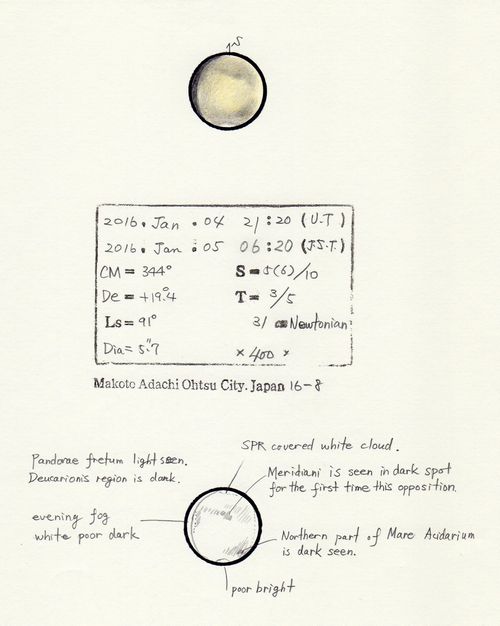 S
2016. Jan. 04 21:20 (U.T)
2016. Jan. 05 06:20 (J.S.T.)
CM = 344° S = 5(6)/10
De = +19.°4 T = 3/5
Ls = 91° 31 cm Newtonian
Dia = 5."7 × 400 ×
Makoto Adachi Ohtsu City. Japan 16-8
SPR covered white cloud.
Pandorae fretum light seen.
Deucarionis region is dark.
Meridiani is seen in dark spot
for the first time this opposition.
evening fog
white poor dark
Northern part of Mare Acidarium
is dark seen.
poor bright